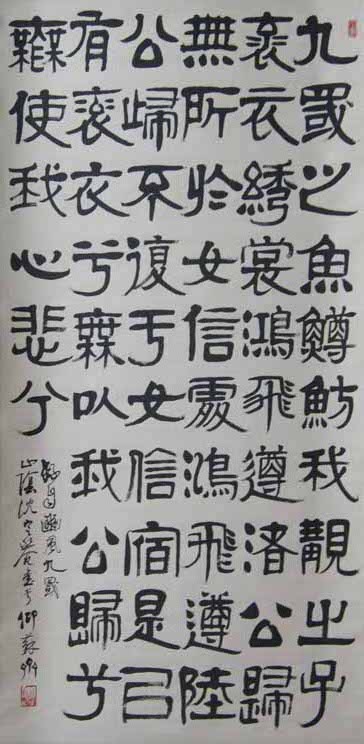 九罭之魚鱒魴我覯之子
袞衣綉裳鴻飛遵渚公歸
無所於女信處鴻飛遵陸
公歸不復于女信宿是㠯
有袞衣兮無以我公歸兮
無使我心悲兮
錄自豳風九罭
山陰沈定庵書于仰蘇